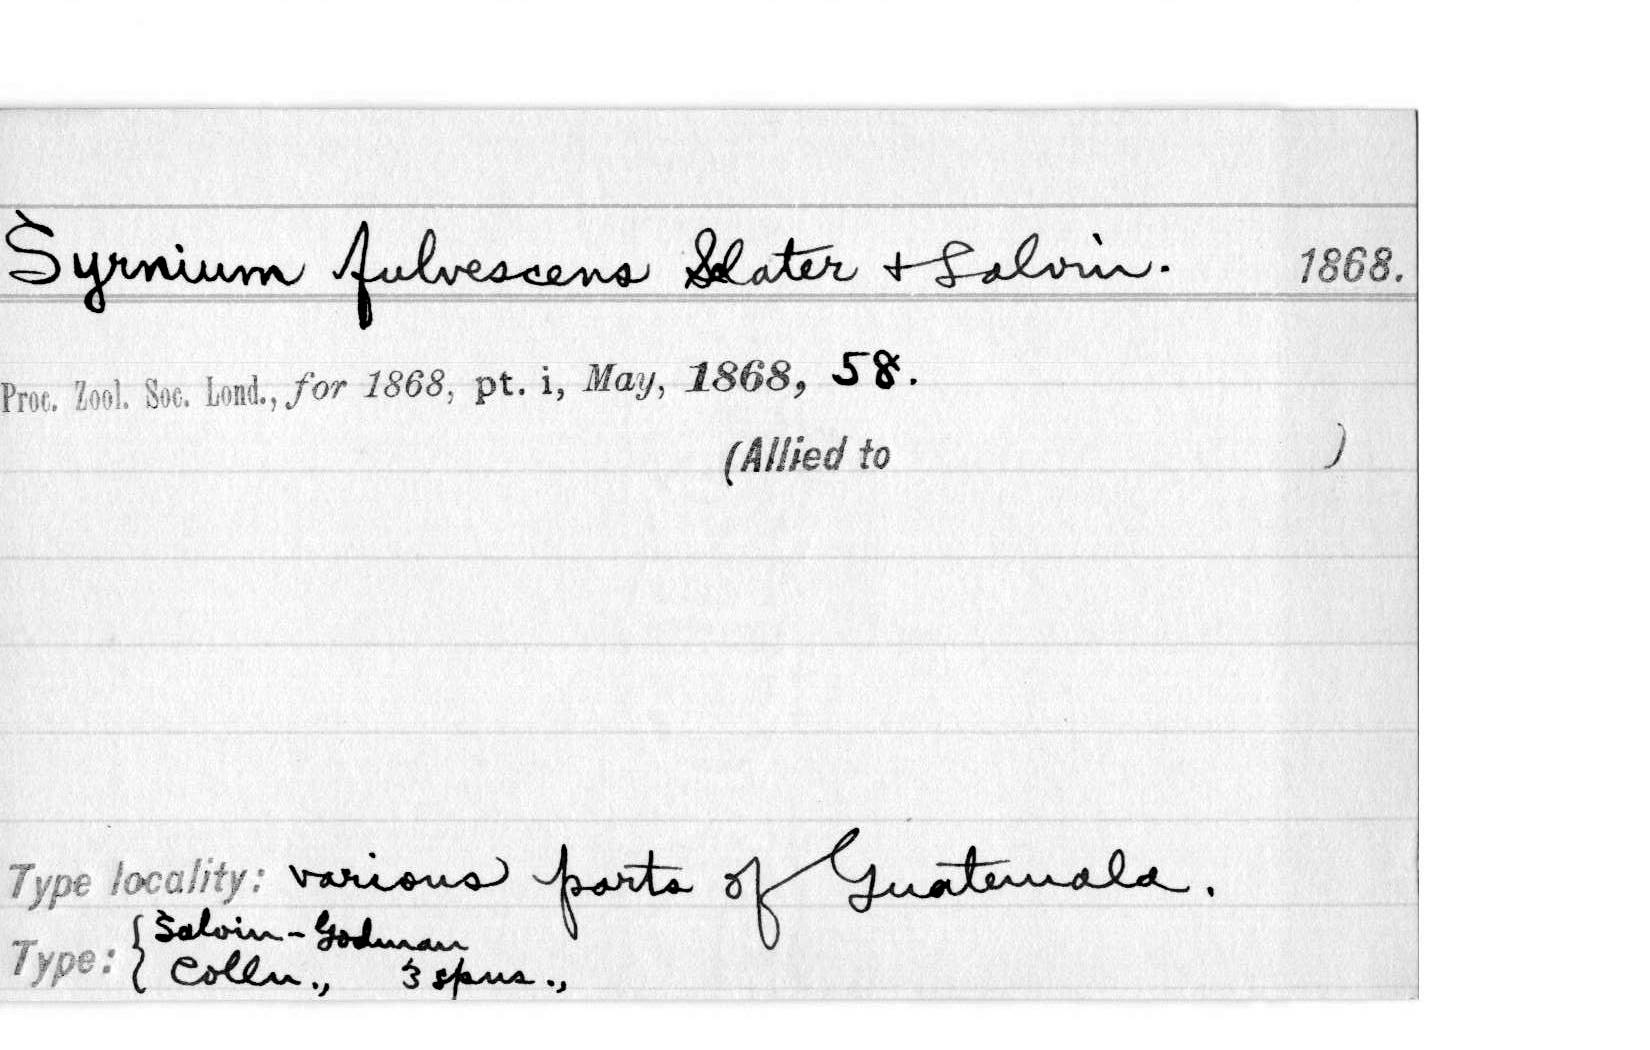 Syrnium fulvescens Sclater + Salvin. 1868.
Proc. Zool. Soc. Lond., for 1868, pt. i, May, 1868, 58.
(Allied to )
Type locality: various parts of Guatemala.
Type: { Salvin-Godman
Colln., 3 spns.,